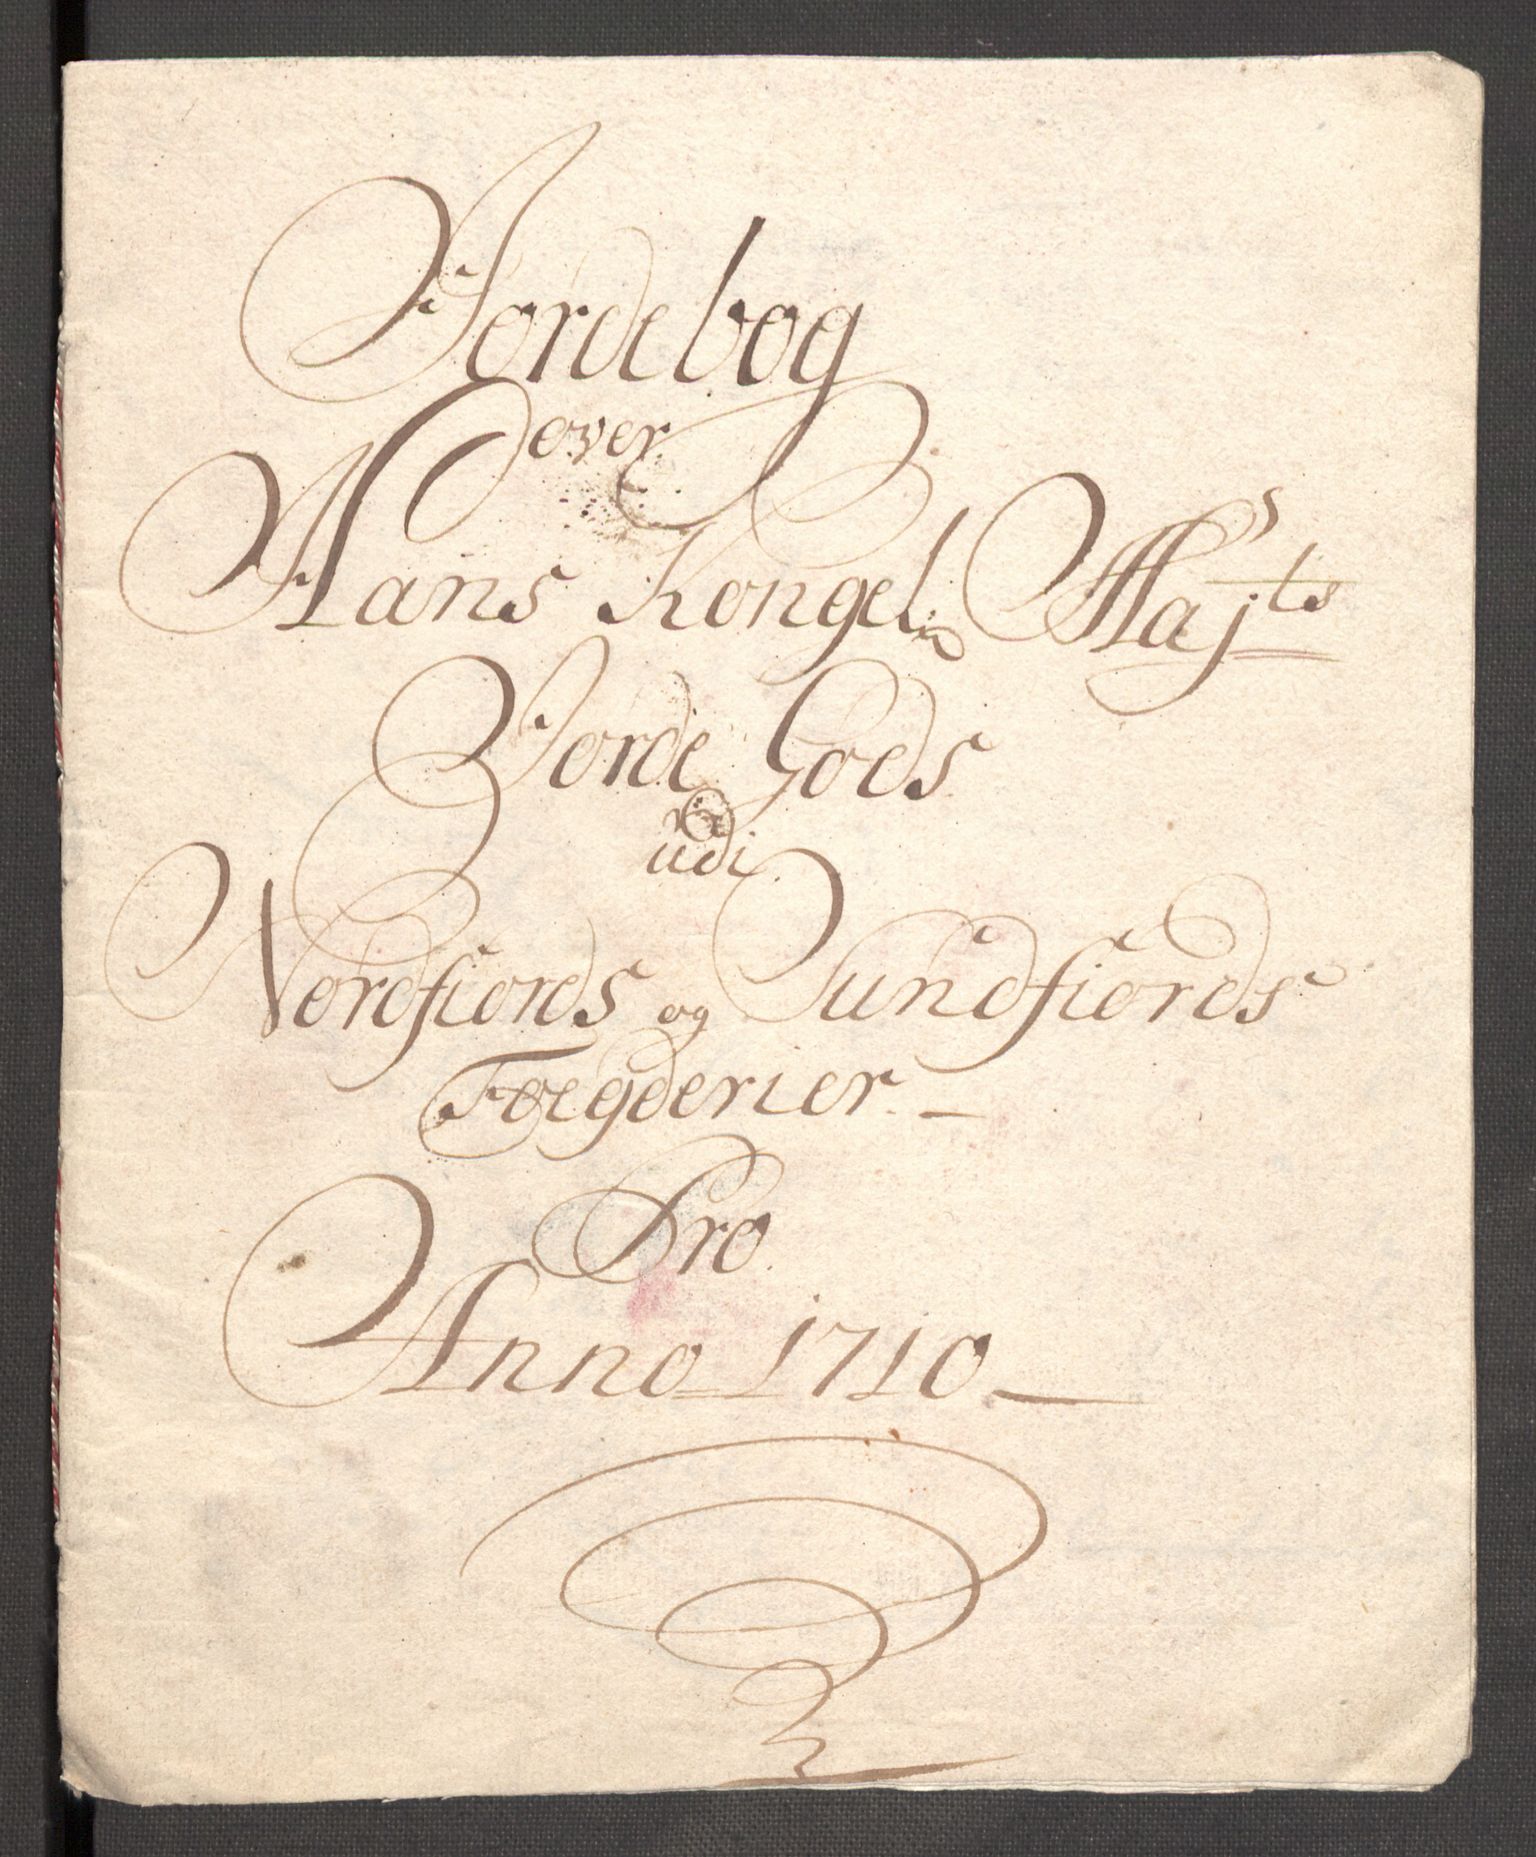 Jordebog
over
Hans Kongel Majts
Jorde Gods
udi
Nordfiords og Sundfiords
Foegderier
Pro
Anno 1710